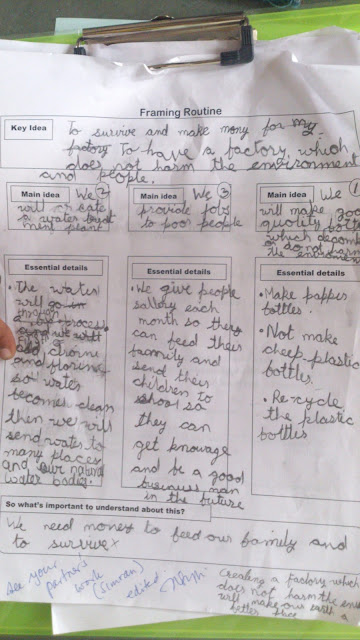 Framing Routine
Key Idea
To survive and make mony for my
factory To have a factory, which
does not harm the environment
and people.
Main idea
We ②
will create
a water treat
ment plant
Main idea
We ③
provide jobs
to poor people
Main idea
We ①
will make good
quality bottles
which decompose
do not harm
the environment
Essential details
• The water
will go in
through
process
and
chlorine
and florine
so water
becomes clean
then we will
send water to
many places
and our natural
water bodies.
Essential details
• We give people
sallery each
month so they
can feed their
family and
send their
children to
shool so
they can
get knowage
and be a good
business man
in the future
Essential details
• Make papper
bottles.
• Not make
cheep plastic
bottles.
• Re-cycle
the plastic
bottles
So what's important to understand about this?
We need money to feed our family and
to survive
see your
partner's
work
(Simran)
edited.
Creating a factory which
does not harm the env
will make our earth a
better place